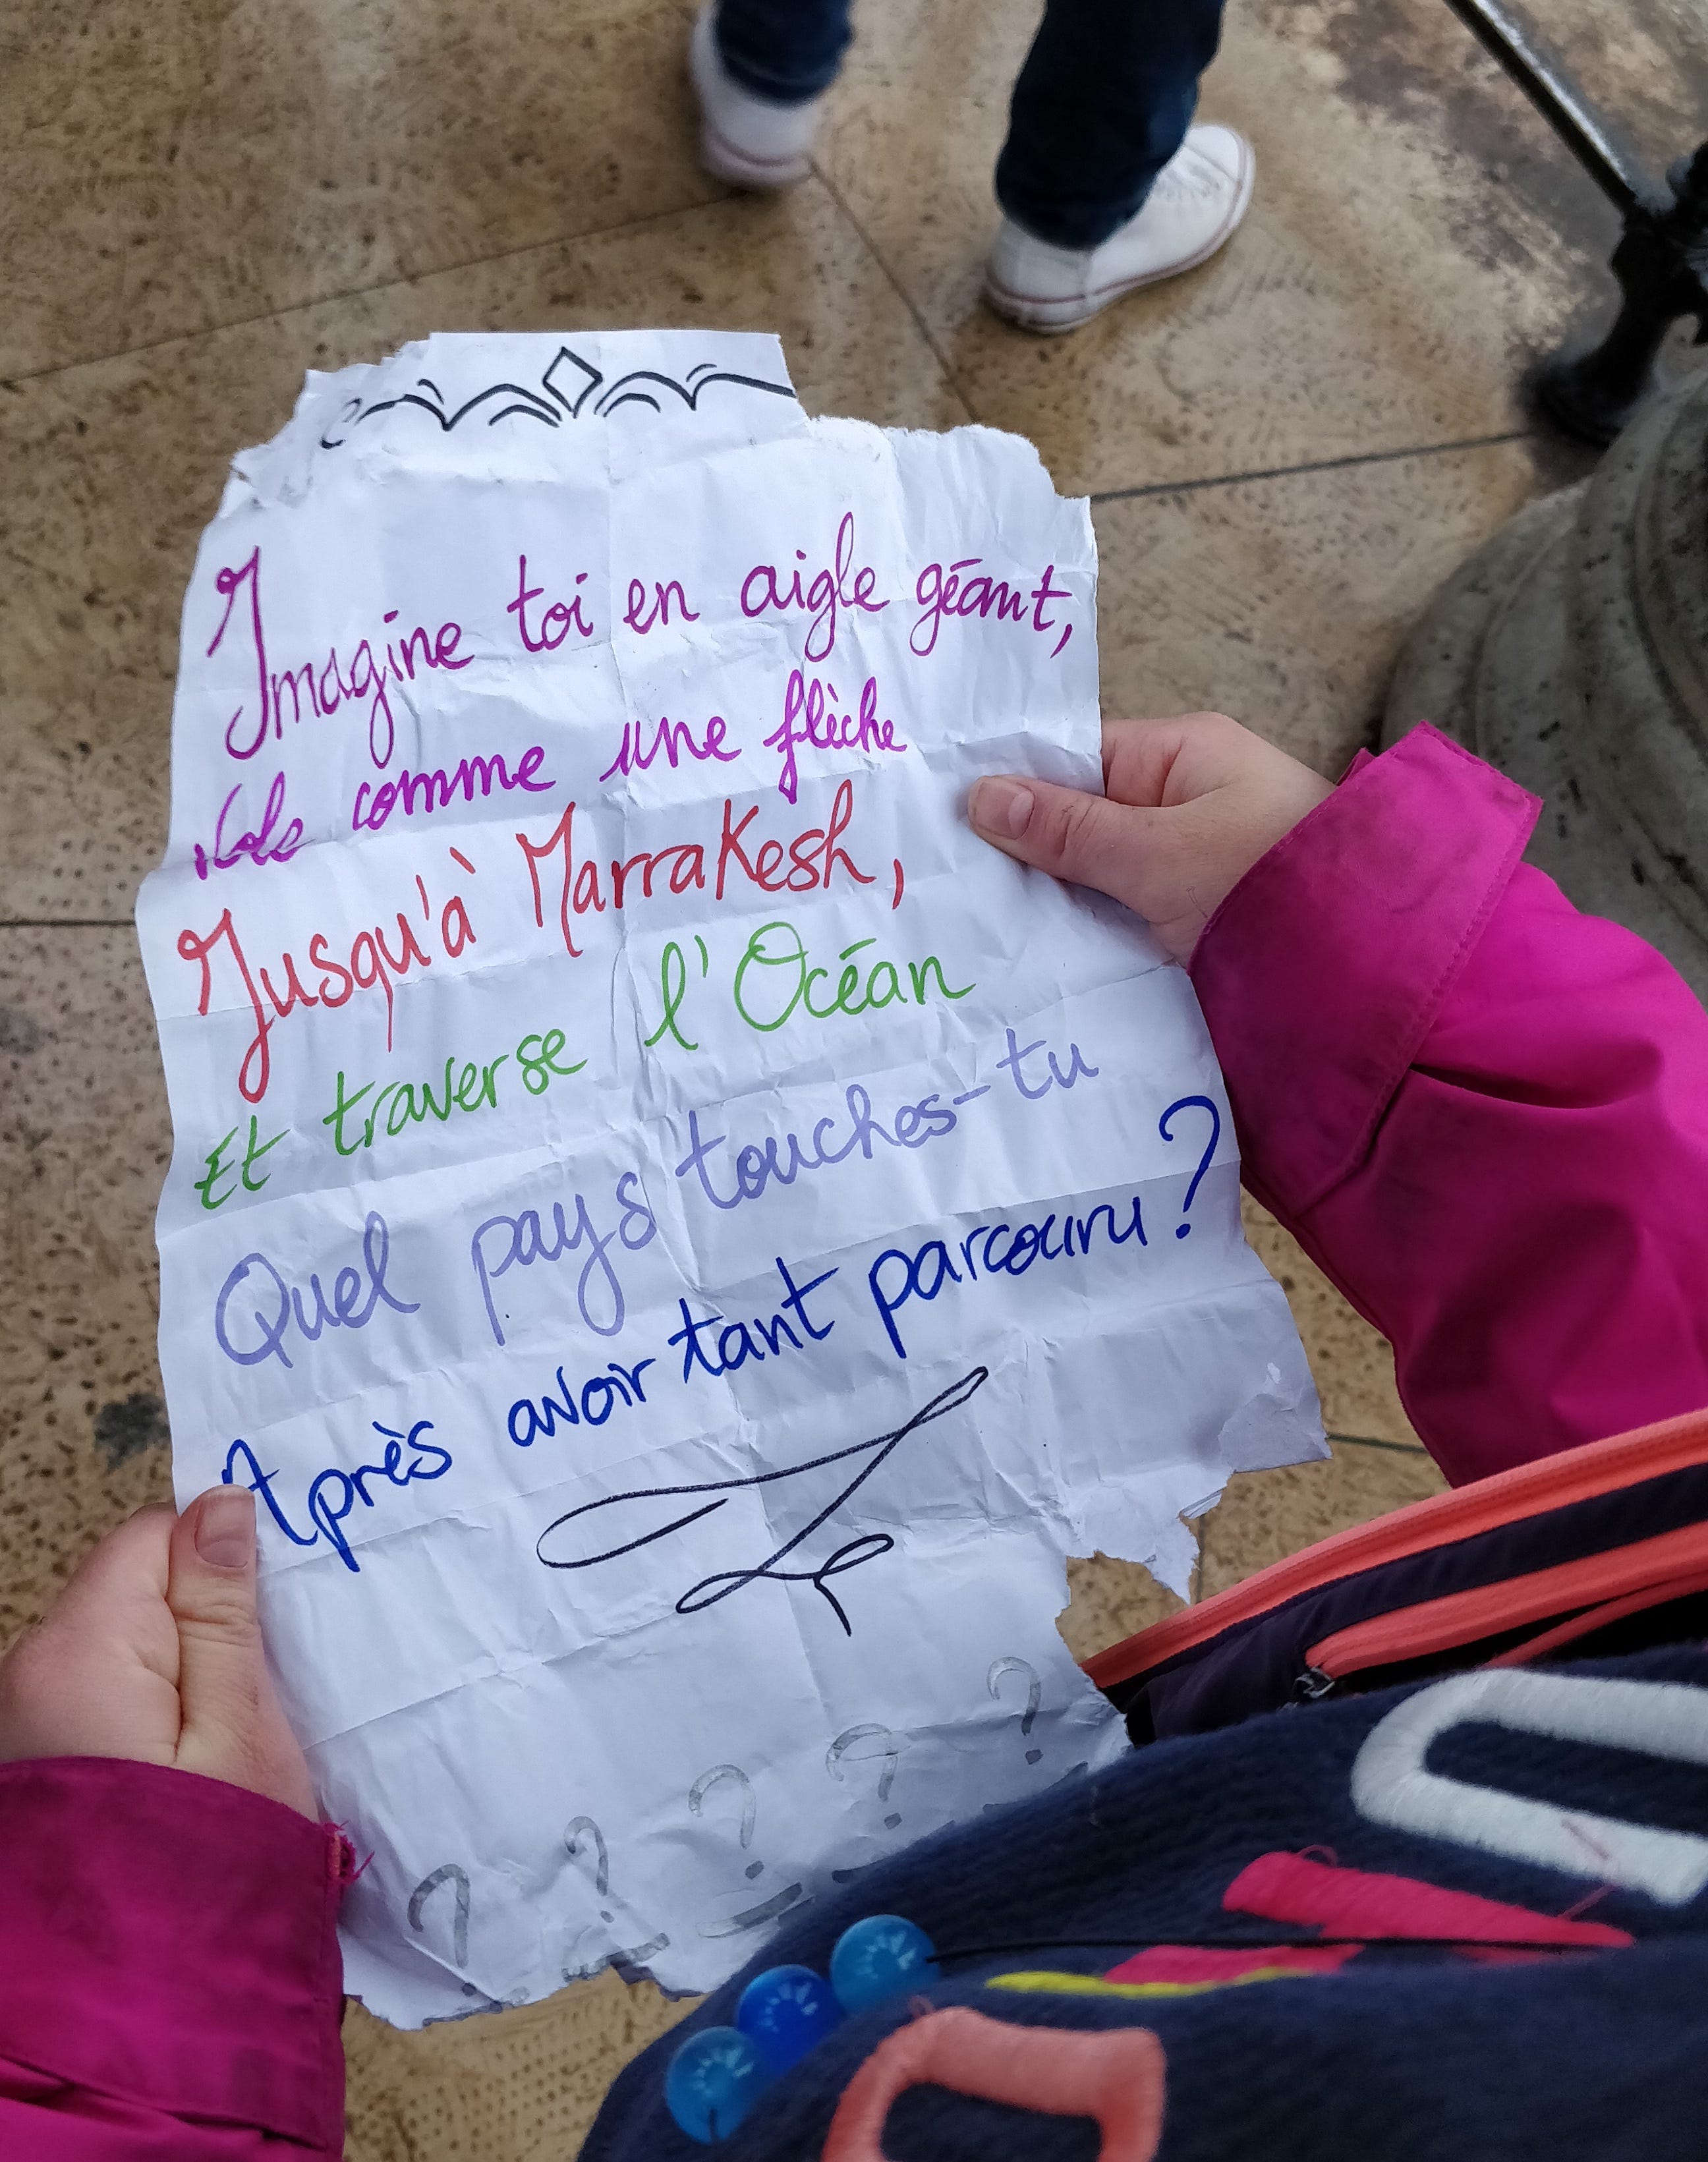 Imagine toi en aigle géant,
Vole comme une flèche
Jusqu'à Marrakesh,
Et traverse l'Océan
Quel pays touches-tu
Après avoir tant parcouru ?
? ? ? ? ?